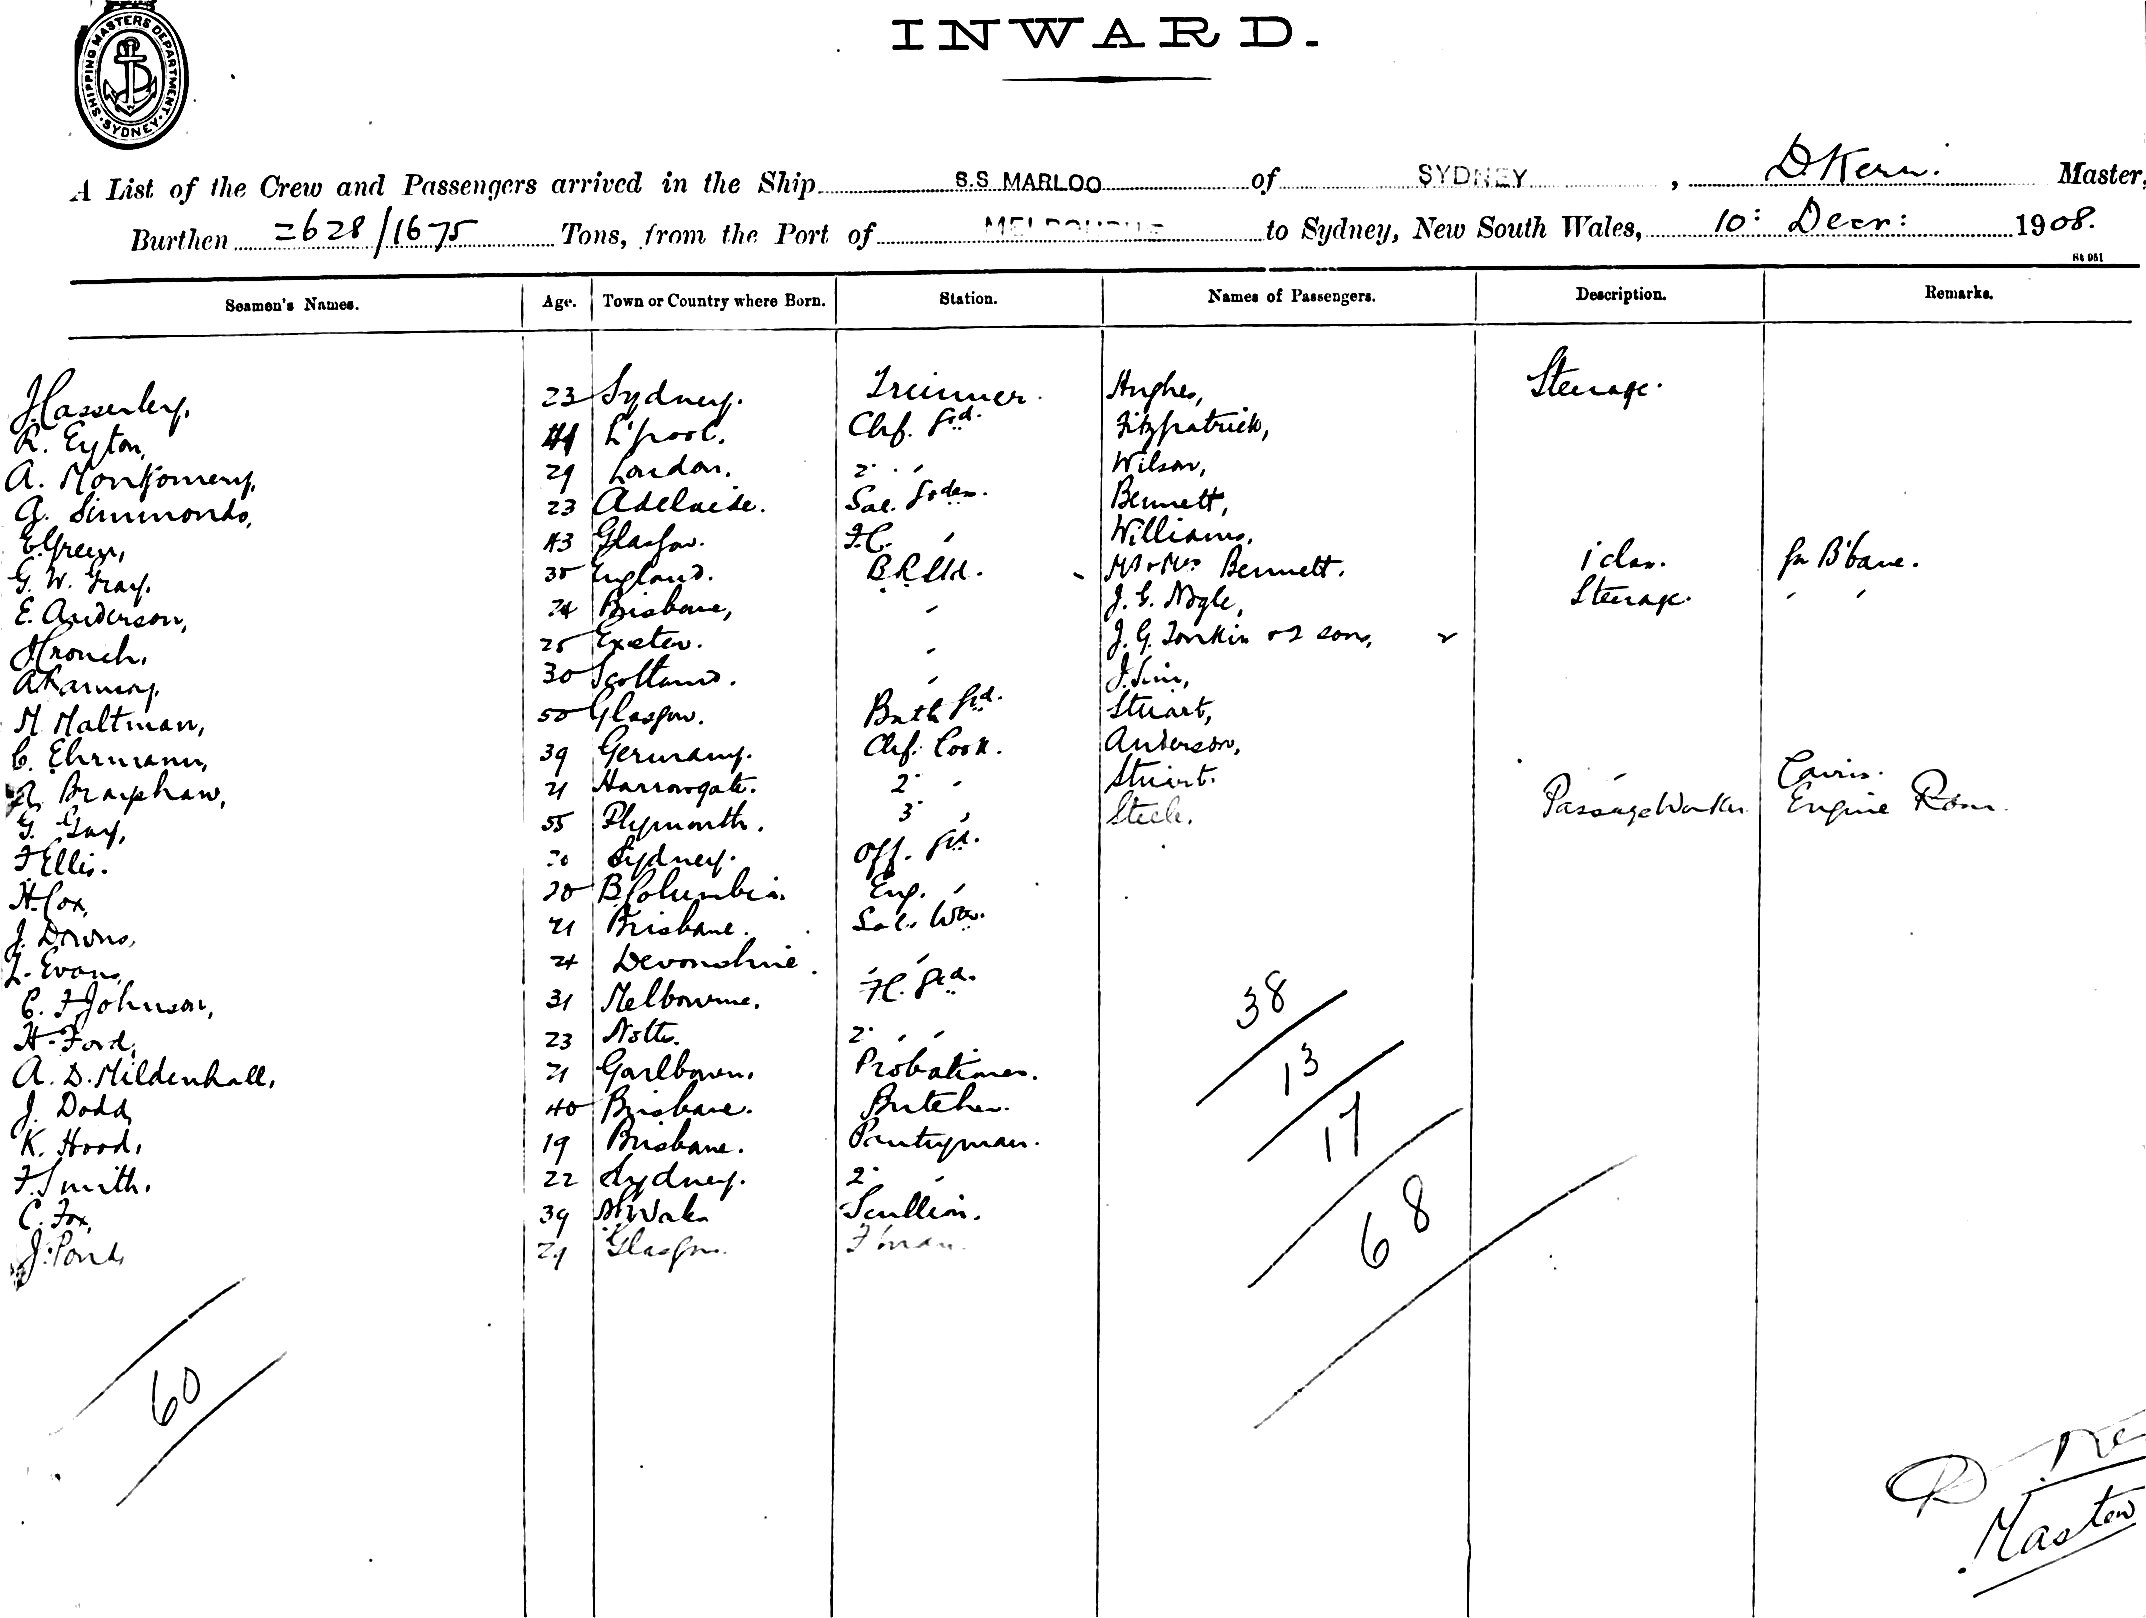 INWARD.
SHIPPING MASTERS DEPARTMENT SYDNEY
A List of the Crew and Passengers arrived in the Ship S.S MARLOO of SYDNEY, D. Kerr. Master,
Burthen 2628/1675 Tons, from the Port of MELBOURNE to Sydney, New South Wales, 10: Decr: 1908.
Seamen's Names. Age. Town or Country where Born. Station. Names of Passengers. Description. Remarks.
J Casserley, 23 Sydney. Trimmer. Hughes, Steerage.
R. Eyton, L'pool. Chf. Std. Fitzpatrick,
A. Montgomery, 29 London. 2. " Wilson,
G. Simmonds, 23 Adelaide. Sal. Bennett,
E. Green, 43 Glasgow. F.C. " Williams,
G. W. Gray. 35 England. B.R.Std. Mr & Mrs Bennett. 1 class. for B'bane.
E. Anderson, 24 Brisbane, " J. C. Steerage. " "
J Crouch, 25 Exeter. " J. G. Tonkin & 2 sons,
30 Scotland. " J. Sim,
M Maltman, 50 Glasgow. Bath Std. Stuart,
C. Ehrmann, 39 Germany. Chf. Cook. Anderson,
Brayshaw, 21 Harrowgate. 2. " Stuart. " Cairns.
G. Gay, 55 Plymouth. 3 " Steele. Passage Worker Engine Room.
F Ellis. 20 Sydney. Off. Std.
H. Cox, 20 B. Columbia. Eng. "
J. Downs, 21 Brisbane. Sal. Wtr.
L. Evans, 24 Devonshire. " "
C. F Johnson, 31 Melbourne. F.C. Std.
H. Ford, 23 Notts. 2. " "
A. D. Mildenhall, 21 Probationer.
J. Dodd, 40 Brisbane. Butcher.
K. Hood, 19 Brisbane. Pantryman.
F. Smith. 22 Sydney. 2. "
C. Fox, 39 Scullion.
J. Pond, 29 Glasgow. F'man.
38
13
17
68
60
D Ke
Master